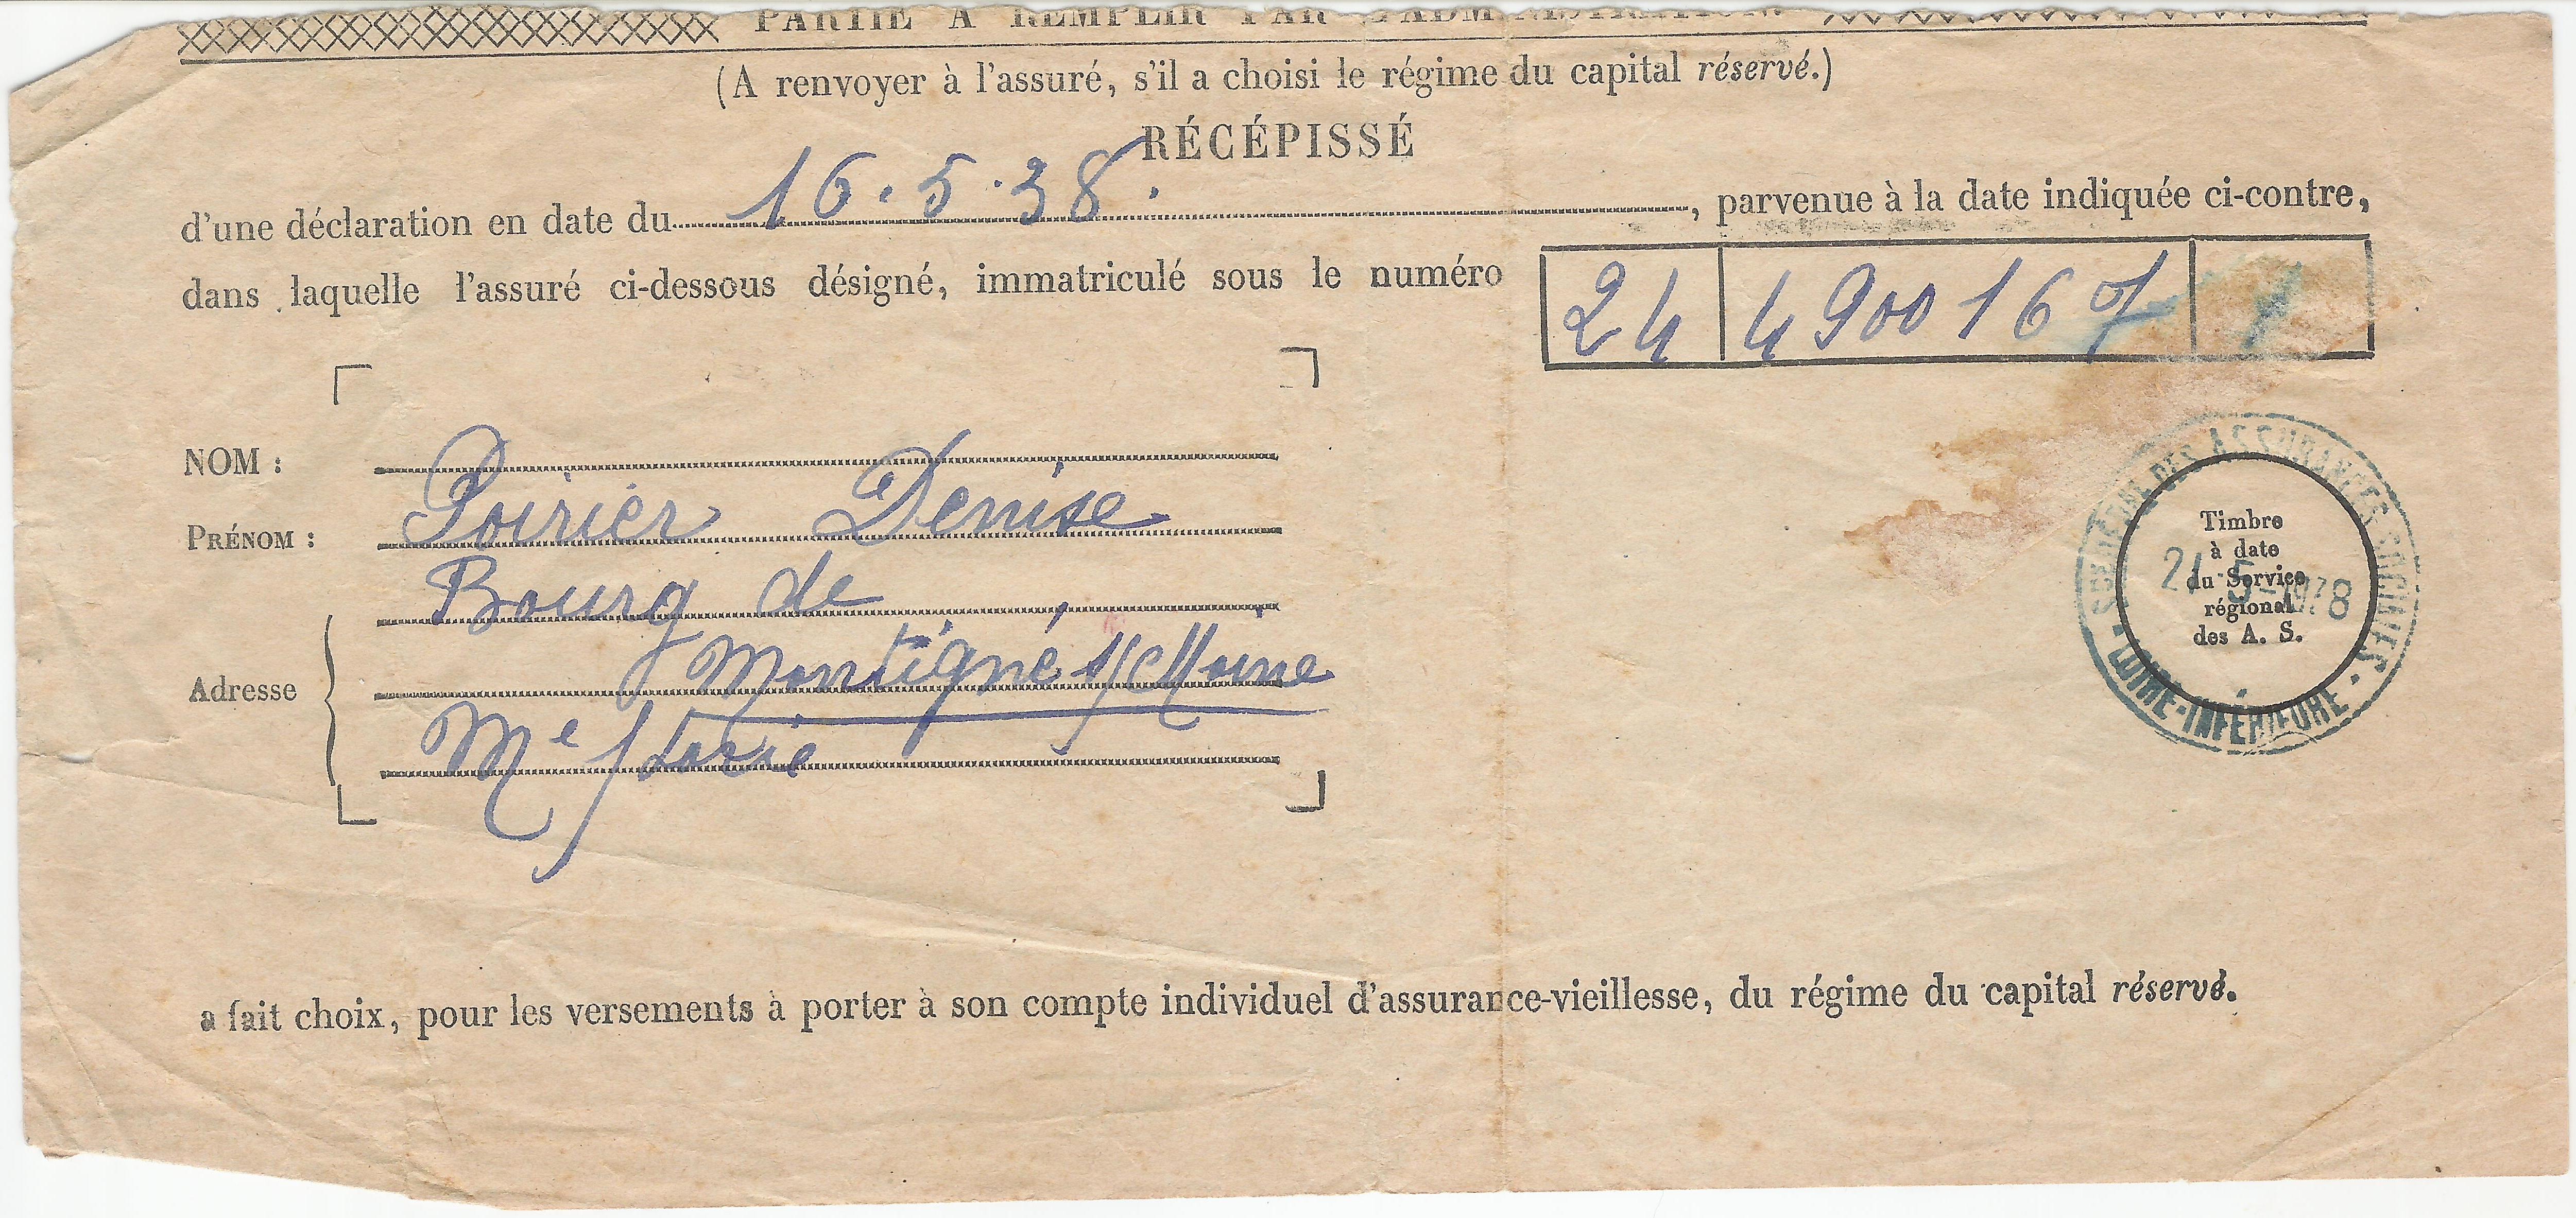 PARTIE A REMPLIR PAR L'ADMINISTRATION.
(A renvoyer à l'assuré, s'il a choisi le régime du capital réservé.)
RÉCÉPISSÉ
d'une déclaration en date du 16.5.38. , parvenue à la date indiquée ci-contre,
dans laquelle l'assuré ci-dessous désigné, immatriculé sous le numéro 24 4900167
NOM :
PRÉNOM : Poirier Denise
Bourg de
Adresse Montigné s/Moine
Me / Loire
SCE DÉPTAL DES ASSURANCES SOCIALES
LOIRE-INFÉRIEURE
Timbre
à date
du Service
régional
des A. S.
21 -5-1938
a fait choix, pour les versements à porter à son compte individuel d'assurance-vieillesse, du régime du capital réservé.